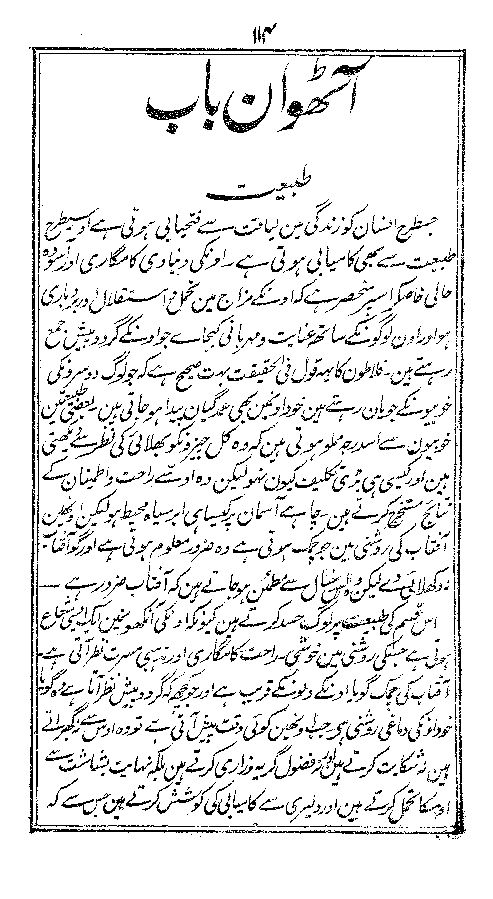 ۱۱۴
آٹھوان باب
طبیعت
جسطرح انسان کو زندگی مین لیاقت سے فتحیابی ہوتی ہے اوسیطرح
طبیعت سے بھی کامیابی ہوتی ہے راونکی دنیاوی کامگاری اور آسودہ
حالی خاصکر اسپر منحصر ہے کہ اونکے مزاج مین تحمل استقلال اور بردباری
ہو اور اون لوگونکے ساتھ عنایت و مہربانی کیجاے جو اونکے گرد و پیش جمع
رہتے ہین۔ فلاطون کا یہہ قول فی الحقیقت بہت صحیح ہے کہ جو لوگ دوسرونکی
خوبیونکے جویان رہتے ہین خود اونمین بھی عمدگیان پیدا ہو جاتی ہین بعضی طبیعتین
خوبیون سے اسدرجہ مملو ہوتی ہین کہ وہ کل چیزونکو بھلائی کی نظر سے دیکھتی
ہین اور کیسی ہی بڑی تکلیف کیون نہو لیکن وہ اوسے راحت و اطمینان کے
نتائج مستخرج کرتے ہین۔ چاہے آسمان پر کیسا ہی ابر سیاہ محیط ہو لیکن اونہین
آفتاب کی روشنی مین جو چمک ہوتی ہے وہ ضرور معلوم ہوتی ہے اور گو آفتاب
نہ دکھلائی دے لیکن وہ اس خیال سے مطمئن ہو جاتے ہین کہ آفتاب ضرور ہے ۔
اس قسم کی طبیعت پر لوگ حسد کرتے ہین کیونکہ اونکی آنکھونمین ایک ایسی شعاع
ہوتی ہے جسکی روشنی مین خوشی۔ راحت کامگاری اور مذہبی مسرت نظر آتی ہے۔
آفتاب کی چمک گویا اونکے دلونکے قریب ہے اور جو کچھ کہ گرد و پیش نظر آتا ہے وہ گویا
خود اونکی دماغی روشنی ہی جب اونھین کوئی دقت پیش آتی ہے تو وہ اوس سے نہ گھبراتے
ہین نہ شکایت کرتے ہین اور نہ فضول گریہ و زاری کرتے ہین بلکہ نہایت بشاشت سے
اوسکا تحمل کرتے ہین اور دلیری سے کامیابی کی کوشش کرتے ہین جس سے کہ